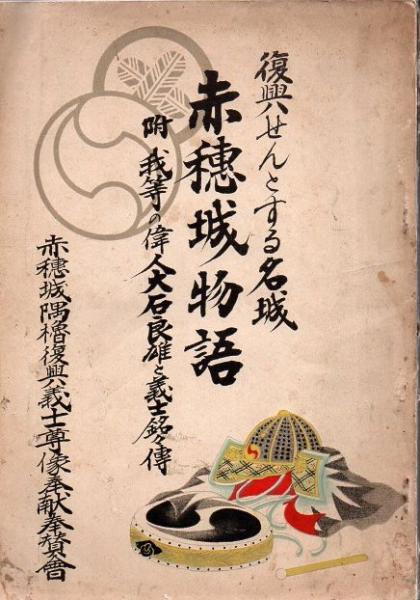 復興せんとする名城
赤穂城物語
附 我等の偉人大石良雄と義士銘々傳
赤穂城隅櫓復興義士尊像奉献奉賛會